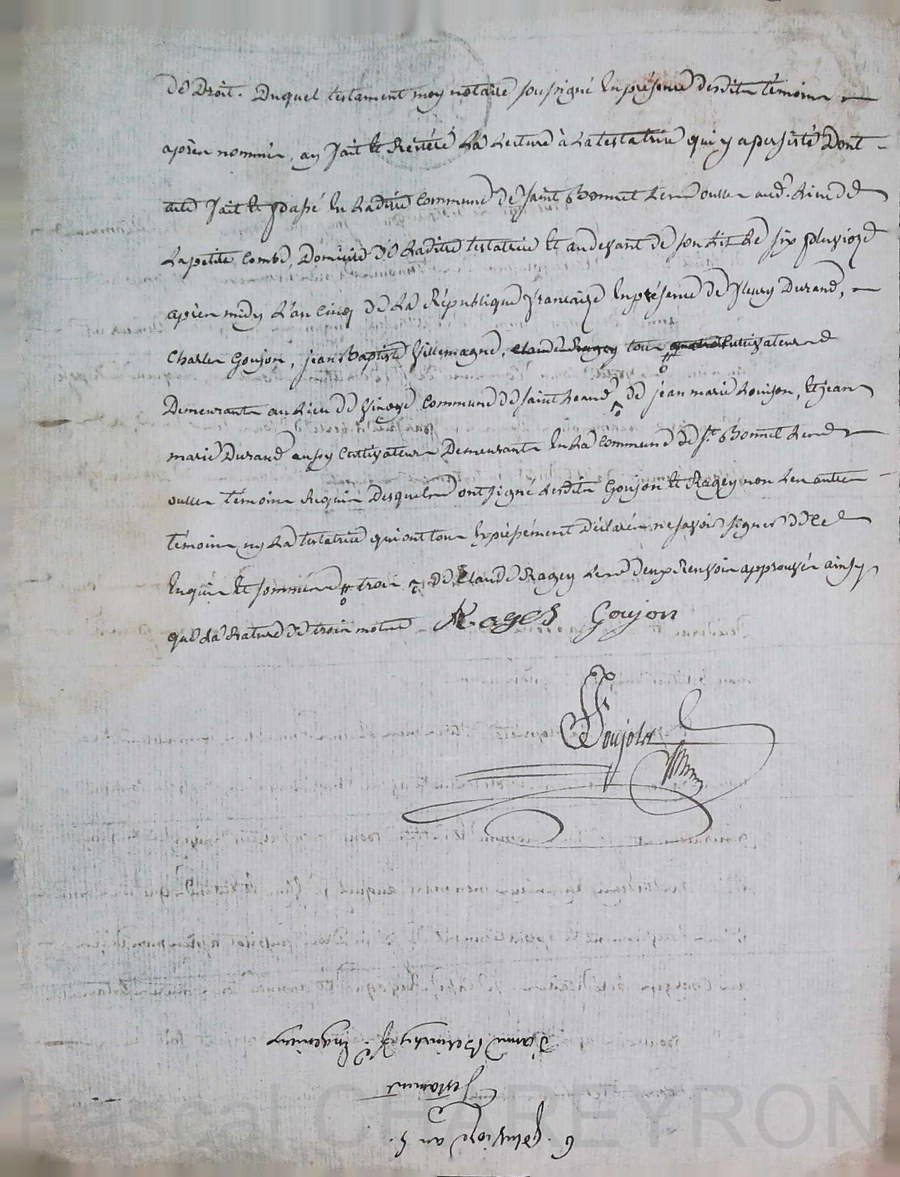 de Droit. Duquel testament moy notaire soussigné En présence desdits témoins
après nommés, ay fait et Réitéré La Lecture à La testatrice qui y a persisté Dont
acte fait et passé En Ladite Commune de saint Bonnet Les oulles aud. Lieu de
La petite Combe, Domicile de Ladite testatrice et au devant de son Lit Le six pluviose
après midy L'an Cinq de La République françaize En présence de fleury Durand,
Charles Goujon, jean Baptiste Villemagne, claude Ragey tous quatre Cultivateurs
Demeurants au Lieu de Commune de saint heand de jean marie Loujon, Et jean
marie Durand aussy Cultivateurs Demeurants En La Commune de St Bonnet Les
oulles témoins Requis Desquels ont signé Lesdits Goujon et Ragey non Les autres
témoins ny La testatrice qui ont tous Expressément déclaré ne savoir signer de ce
Enquis et sommés # trois de Claude Ragey Les deux Renvois approuvés ainsy
que La Rature de trois mots
Ragey Goujon
Poujol
6. pluviose an 5.
Testament